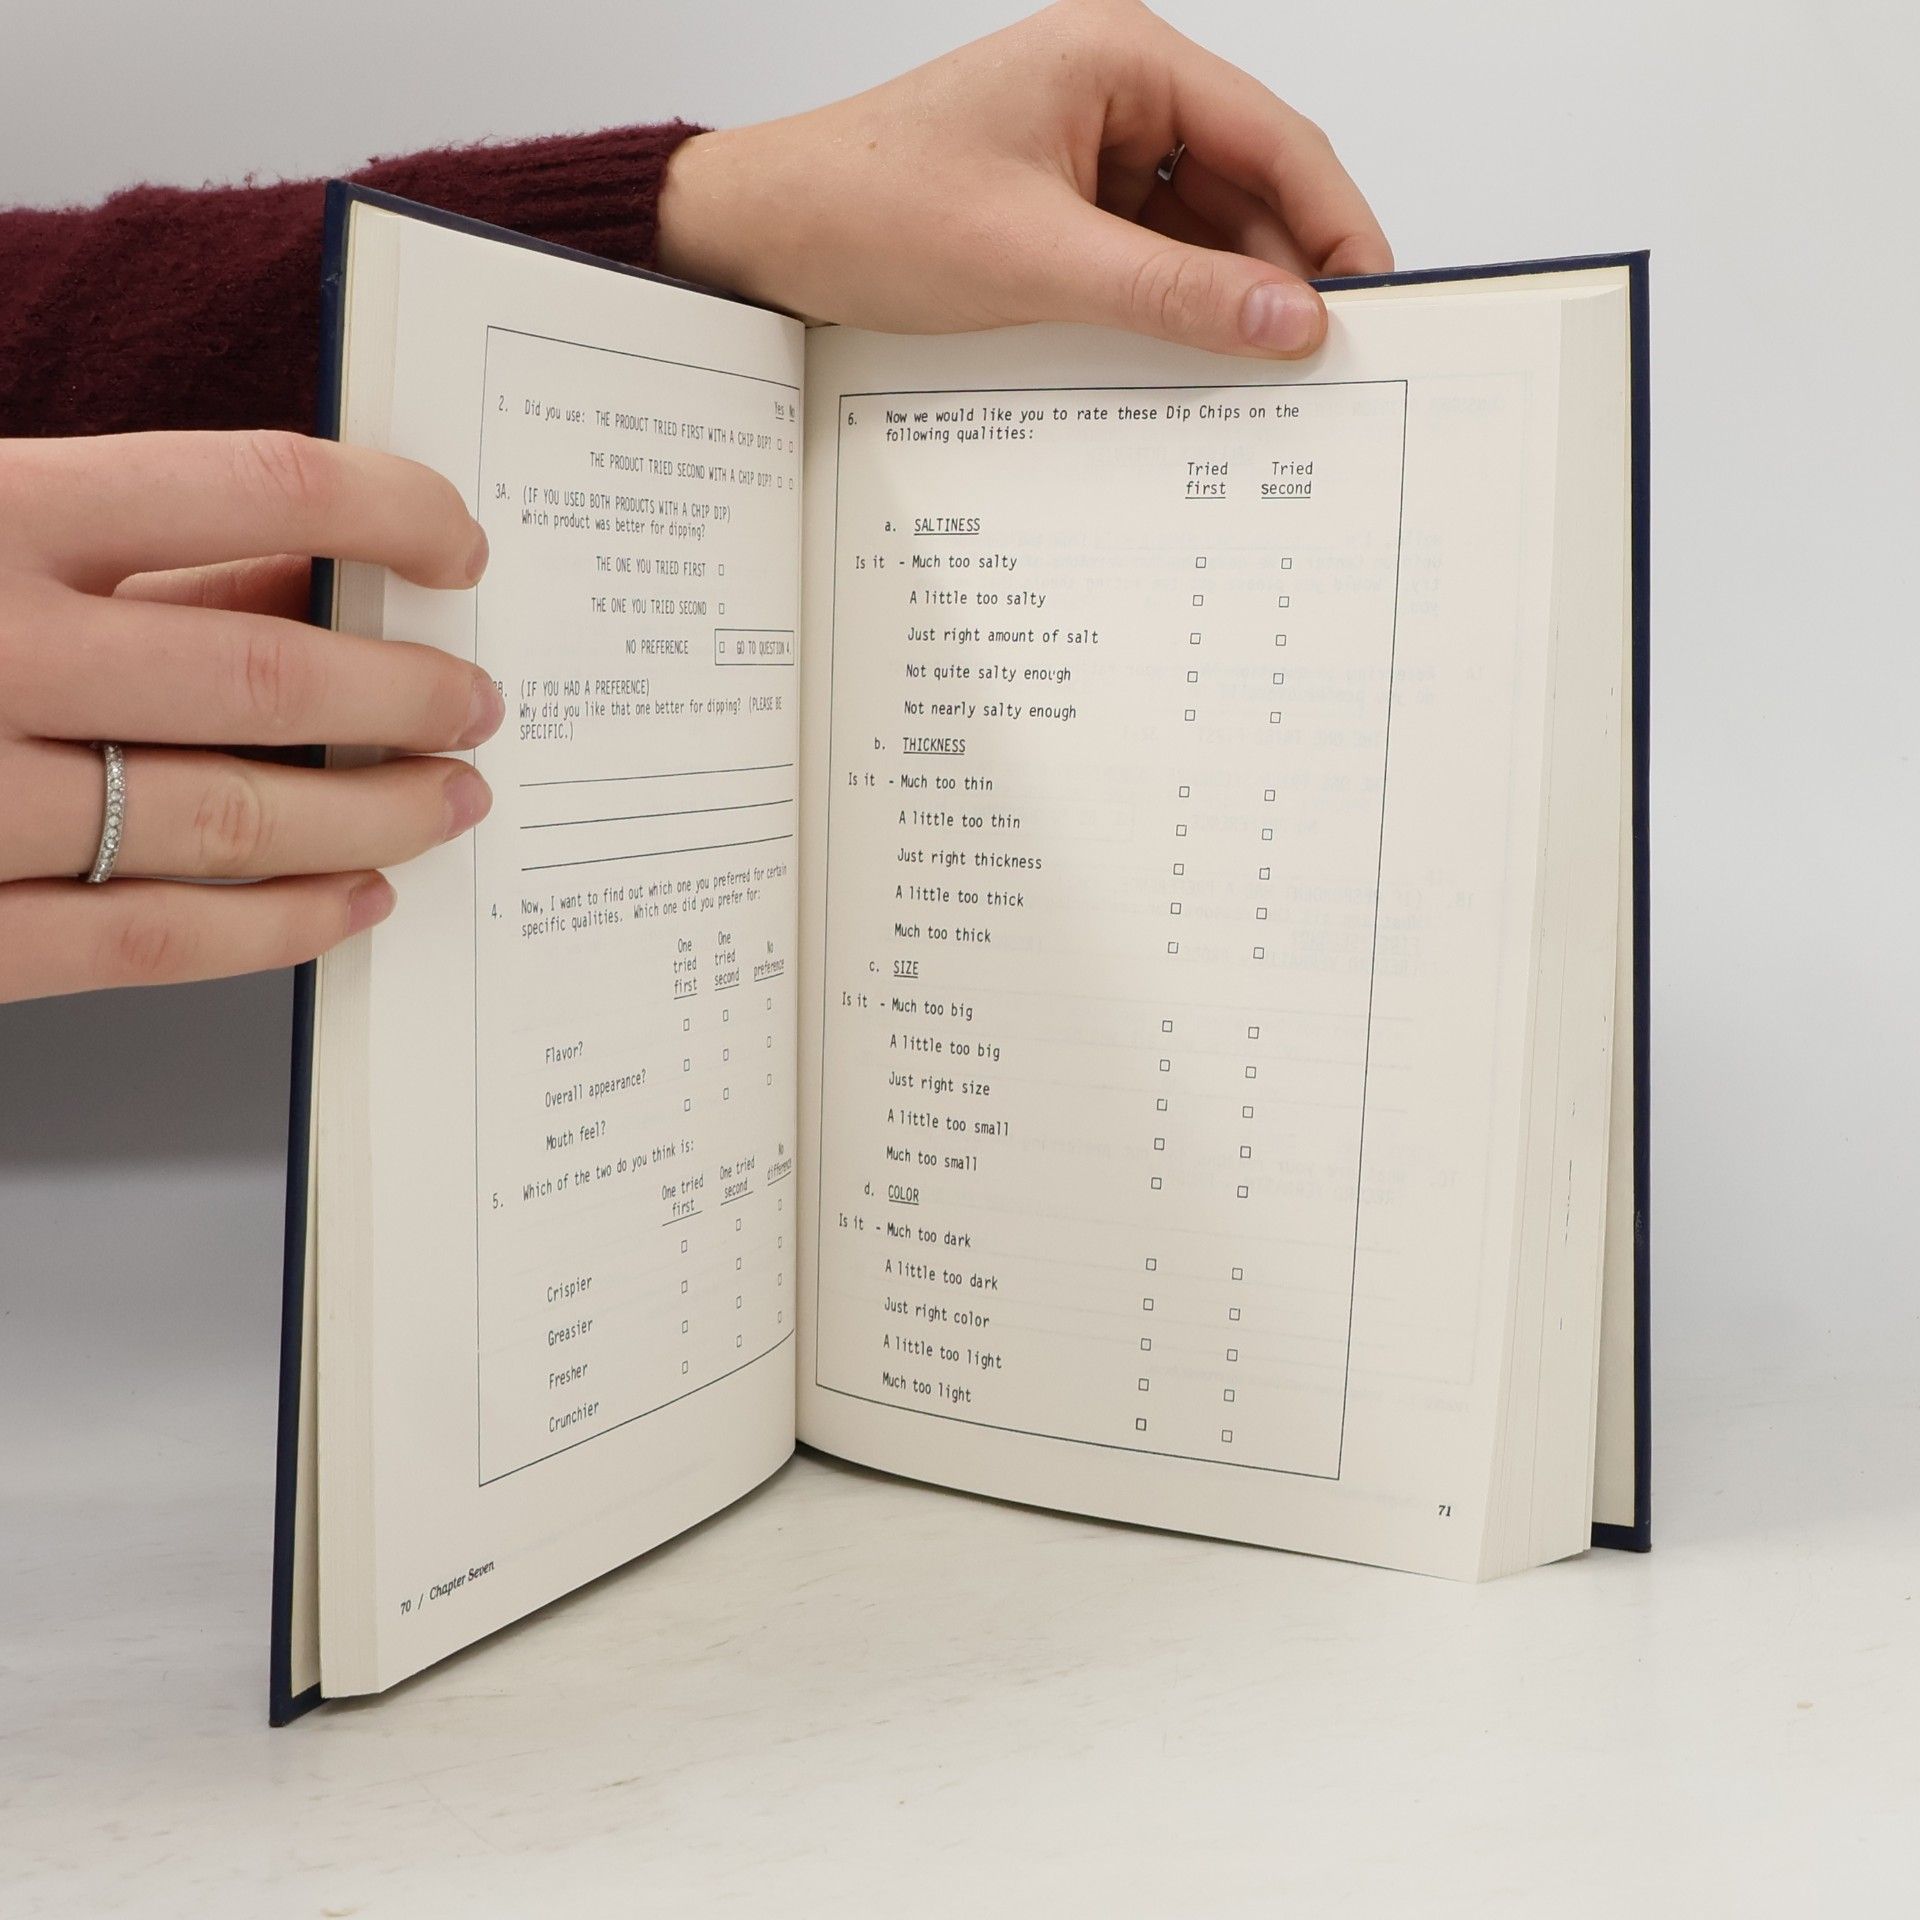 Yes No
2. Did you use: THE PRODUCT TRIED FIRST WITH A CHIP DIP? □ □
THE PRODUCT TRIED SECOND WITH A CHIP DIP? □ □
3A. (IF YOU USED BOTH PRODUCTS WITH A CHIP DIP)
Which product was better for dipping?
THE ONE YOU TRIED FIRST □
THE ONE YOU TRIED SECOND □
NO PREFERENCE □ GO TO QUESTION 4.
B. (IF YOU HAD A PREFERENCE)
Why did you like that one better for dipping? (PLEASE BE
SPECIFIC.)
4. Now, I want to find out which one you preferred for certain
specific qualities. Which one did you prefer for:
One One No
tried tried preference
first second
Flavor? □ □ □
Overall appearance? □ □ □
Mouth feel? □ □ □
5. Which of the two do you think is:
One tried One tried No
first second difference
Crispier □ □ □
Greasier □ □ □
Fresher □ □ □
Crunchier □ □ □
70 / Chapter Seven
6. Now we would like you to rate these Dip Chips on the
following qualities:
Tried Tried
first second
a. SALTINESS
Is it - Much too salty □ □
A little too salty □ □
Just right amount of salt □ □
Not quite salty enough □ □
Not nearly salty enough □ □
b. THICKNESS
Is it - Much too thin □ □
A little too thin □ □
Just right thickness □ □
A little too thick □ □
Much too thick □ □
c. SIZE
Is it - Much too big □ □
A little too big □ □
Just right size □ □
A little too small □ □
Much too small □ □
d. COLOR
Is it - Much too dark □ □
A little too dark □ □
Just right color □ □
A little too light □ □
Much too light □ □
71